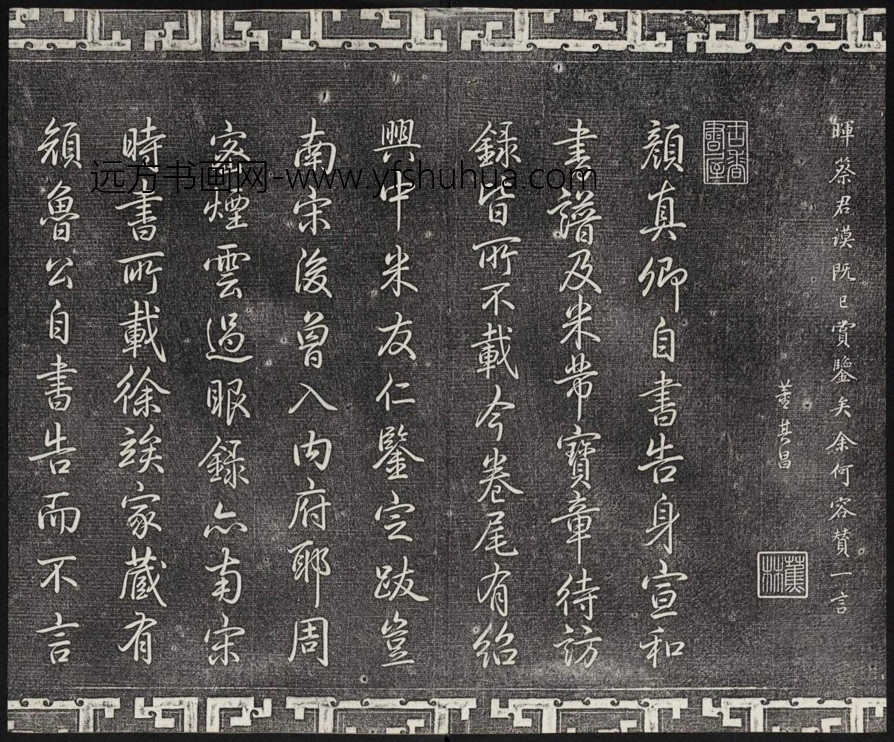 暉蔡君謨既已賞鑒矣余何容贊一言
董其昌
蕉林
顏真卿自書告身宣和
書譜及米芾寶章待訪
録皆所不載今卷尾有紹
興中米友仁鑒定跋豈
南宋後曾入内府耶周
密煙雲過眼録亦南宋
時書所載徐琰家藏有
顏魯公自書告而不言
远方书画网-www.yfshuhua.com